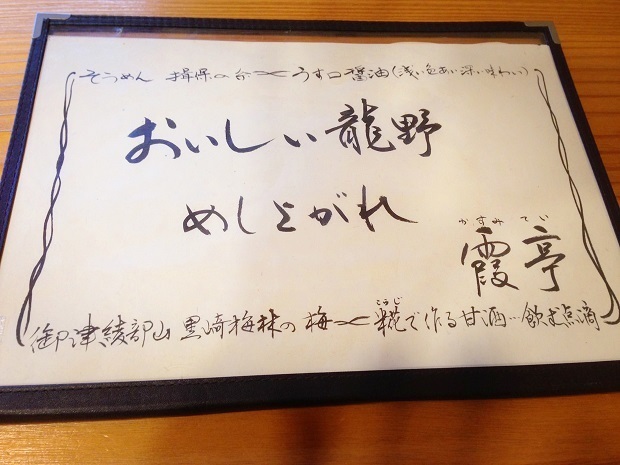 そうめん 揖保の糸〜うす口醤油(浅い色あい深い味わい)
おいしい龍野
めしあがれ
かすみてい
霞亭
こうじ
御津綾部山 黒崎梅林の梅〜糀で作る甘酒…飲む点滴